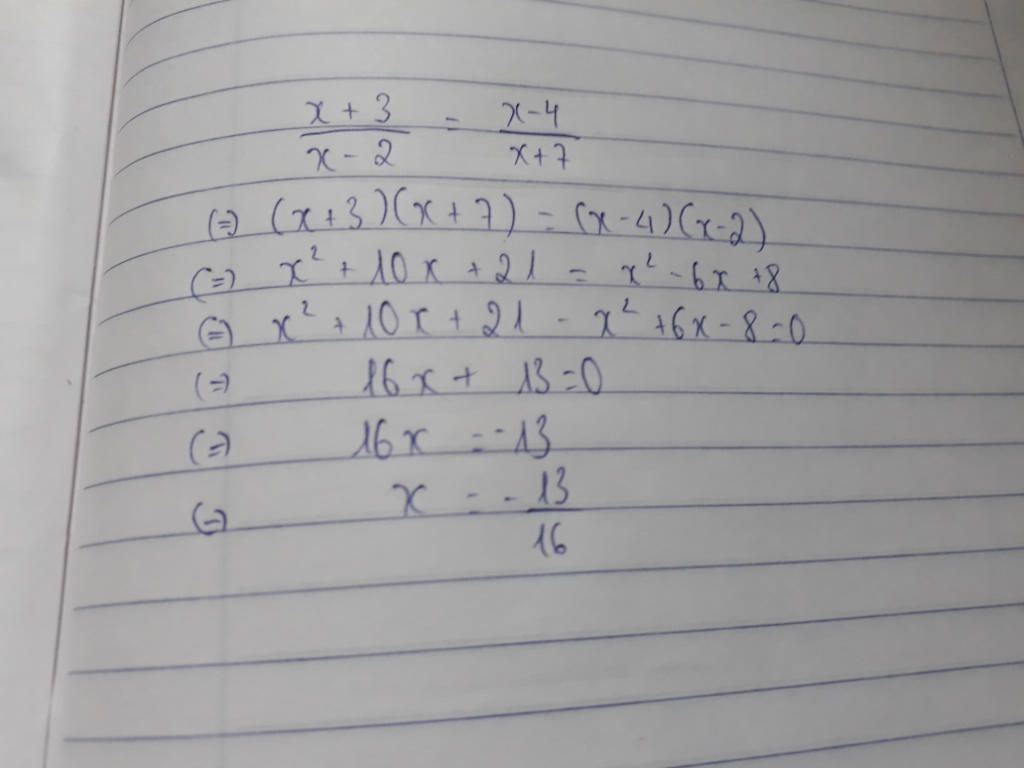 x + 3 / x - 2 = x - 4 / x + 7
(=) (x + 3)(x + 7) = (x - 4)(x - 2)
(=) x² + 10x + 21 = x² - 6x + 8
(=) x² + 10x + 21 - x² + 6x - 8 = 0
(=) 16x + 13 = 0
(=) 16x = -13
(=) x = - 13 / 16